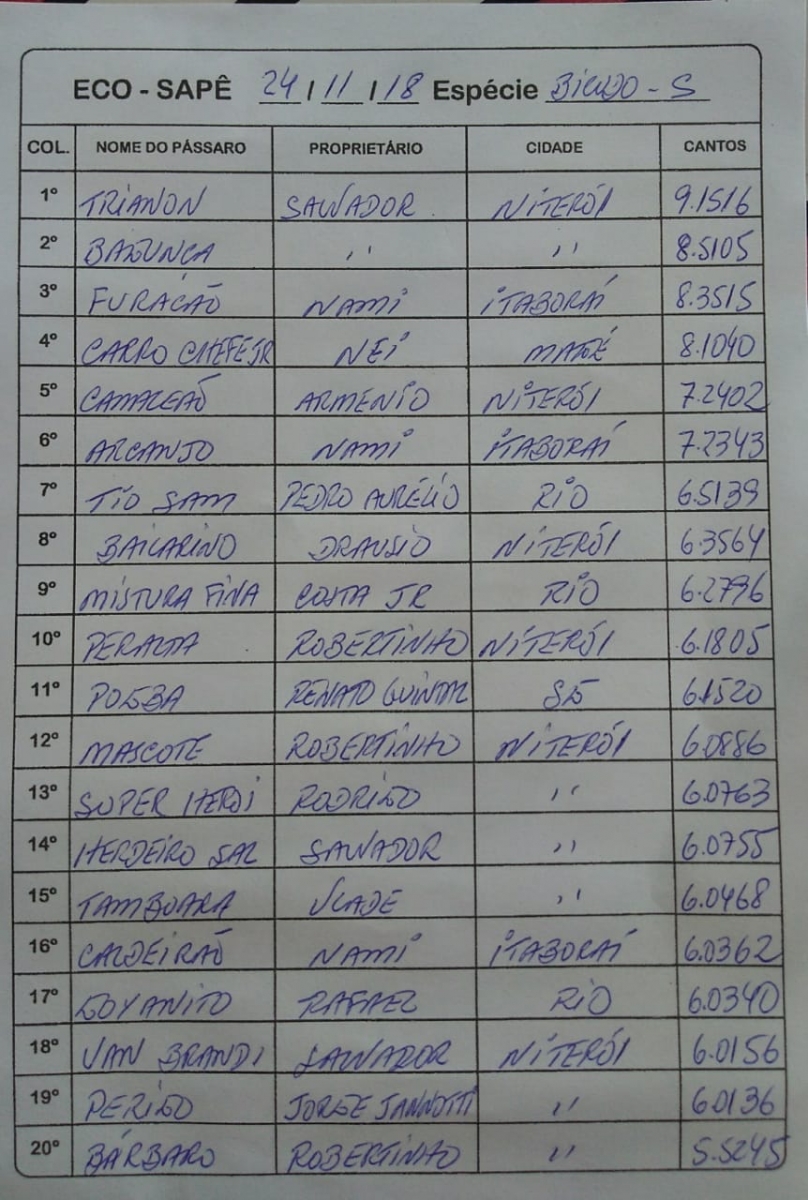 ECO - SAPÊ 24 / 11 / 18 Espécie BICUDO - S
COL. NOME DO PÁSSARO PROPRIETÁRIO CIDADE CANTOS
1º TRIANON SALVADOR NITERÓI 9.1516
2º BAGUNÇA '' '' 8.5105
3º FURACÃO NAMI ITABORAÍ 8.3515
4º CARRO CHEFE JR NEI MAGÉ 8.1040
5º CAMALEAÕ ARMENIO NITERÓI 7.2402
6º ARCANJO NAMI ITABORAÍ 7.2343
7º TIO SAM PEDRO AURÉLIO RIO 6.5139
8º BAILARINO DRAUSIO NITERÓI 6.3564
9º MISTURA FINA COSTA JR RIO 6.2796
10º PERALTA ROBERTINHO NITERÓI 6.1805
11º RENATO SG 6.1520
12º MASCOTE ROBERTINHO NITERÓI 6.0886
13º SUPER HEROI RODRIGO '' 6.0763
14º HERDEIRO SAL SALVADOR '' 6.0755
15º TAMBOARA VLADE '' 6.0468
16º CALDEIRAÕ NAMI ITABORAÍ 6.0362
17º GOYANITO RAFAEL RIO 6.0340
18º VAN BRANDI SALVADOR NITERÓI 6.0156
19º PERIGO JORGE JANNOTTI '' 6.0136
20º BÁRBARO ROBERTINHO '' 5.5245